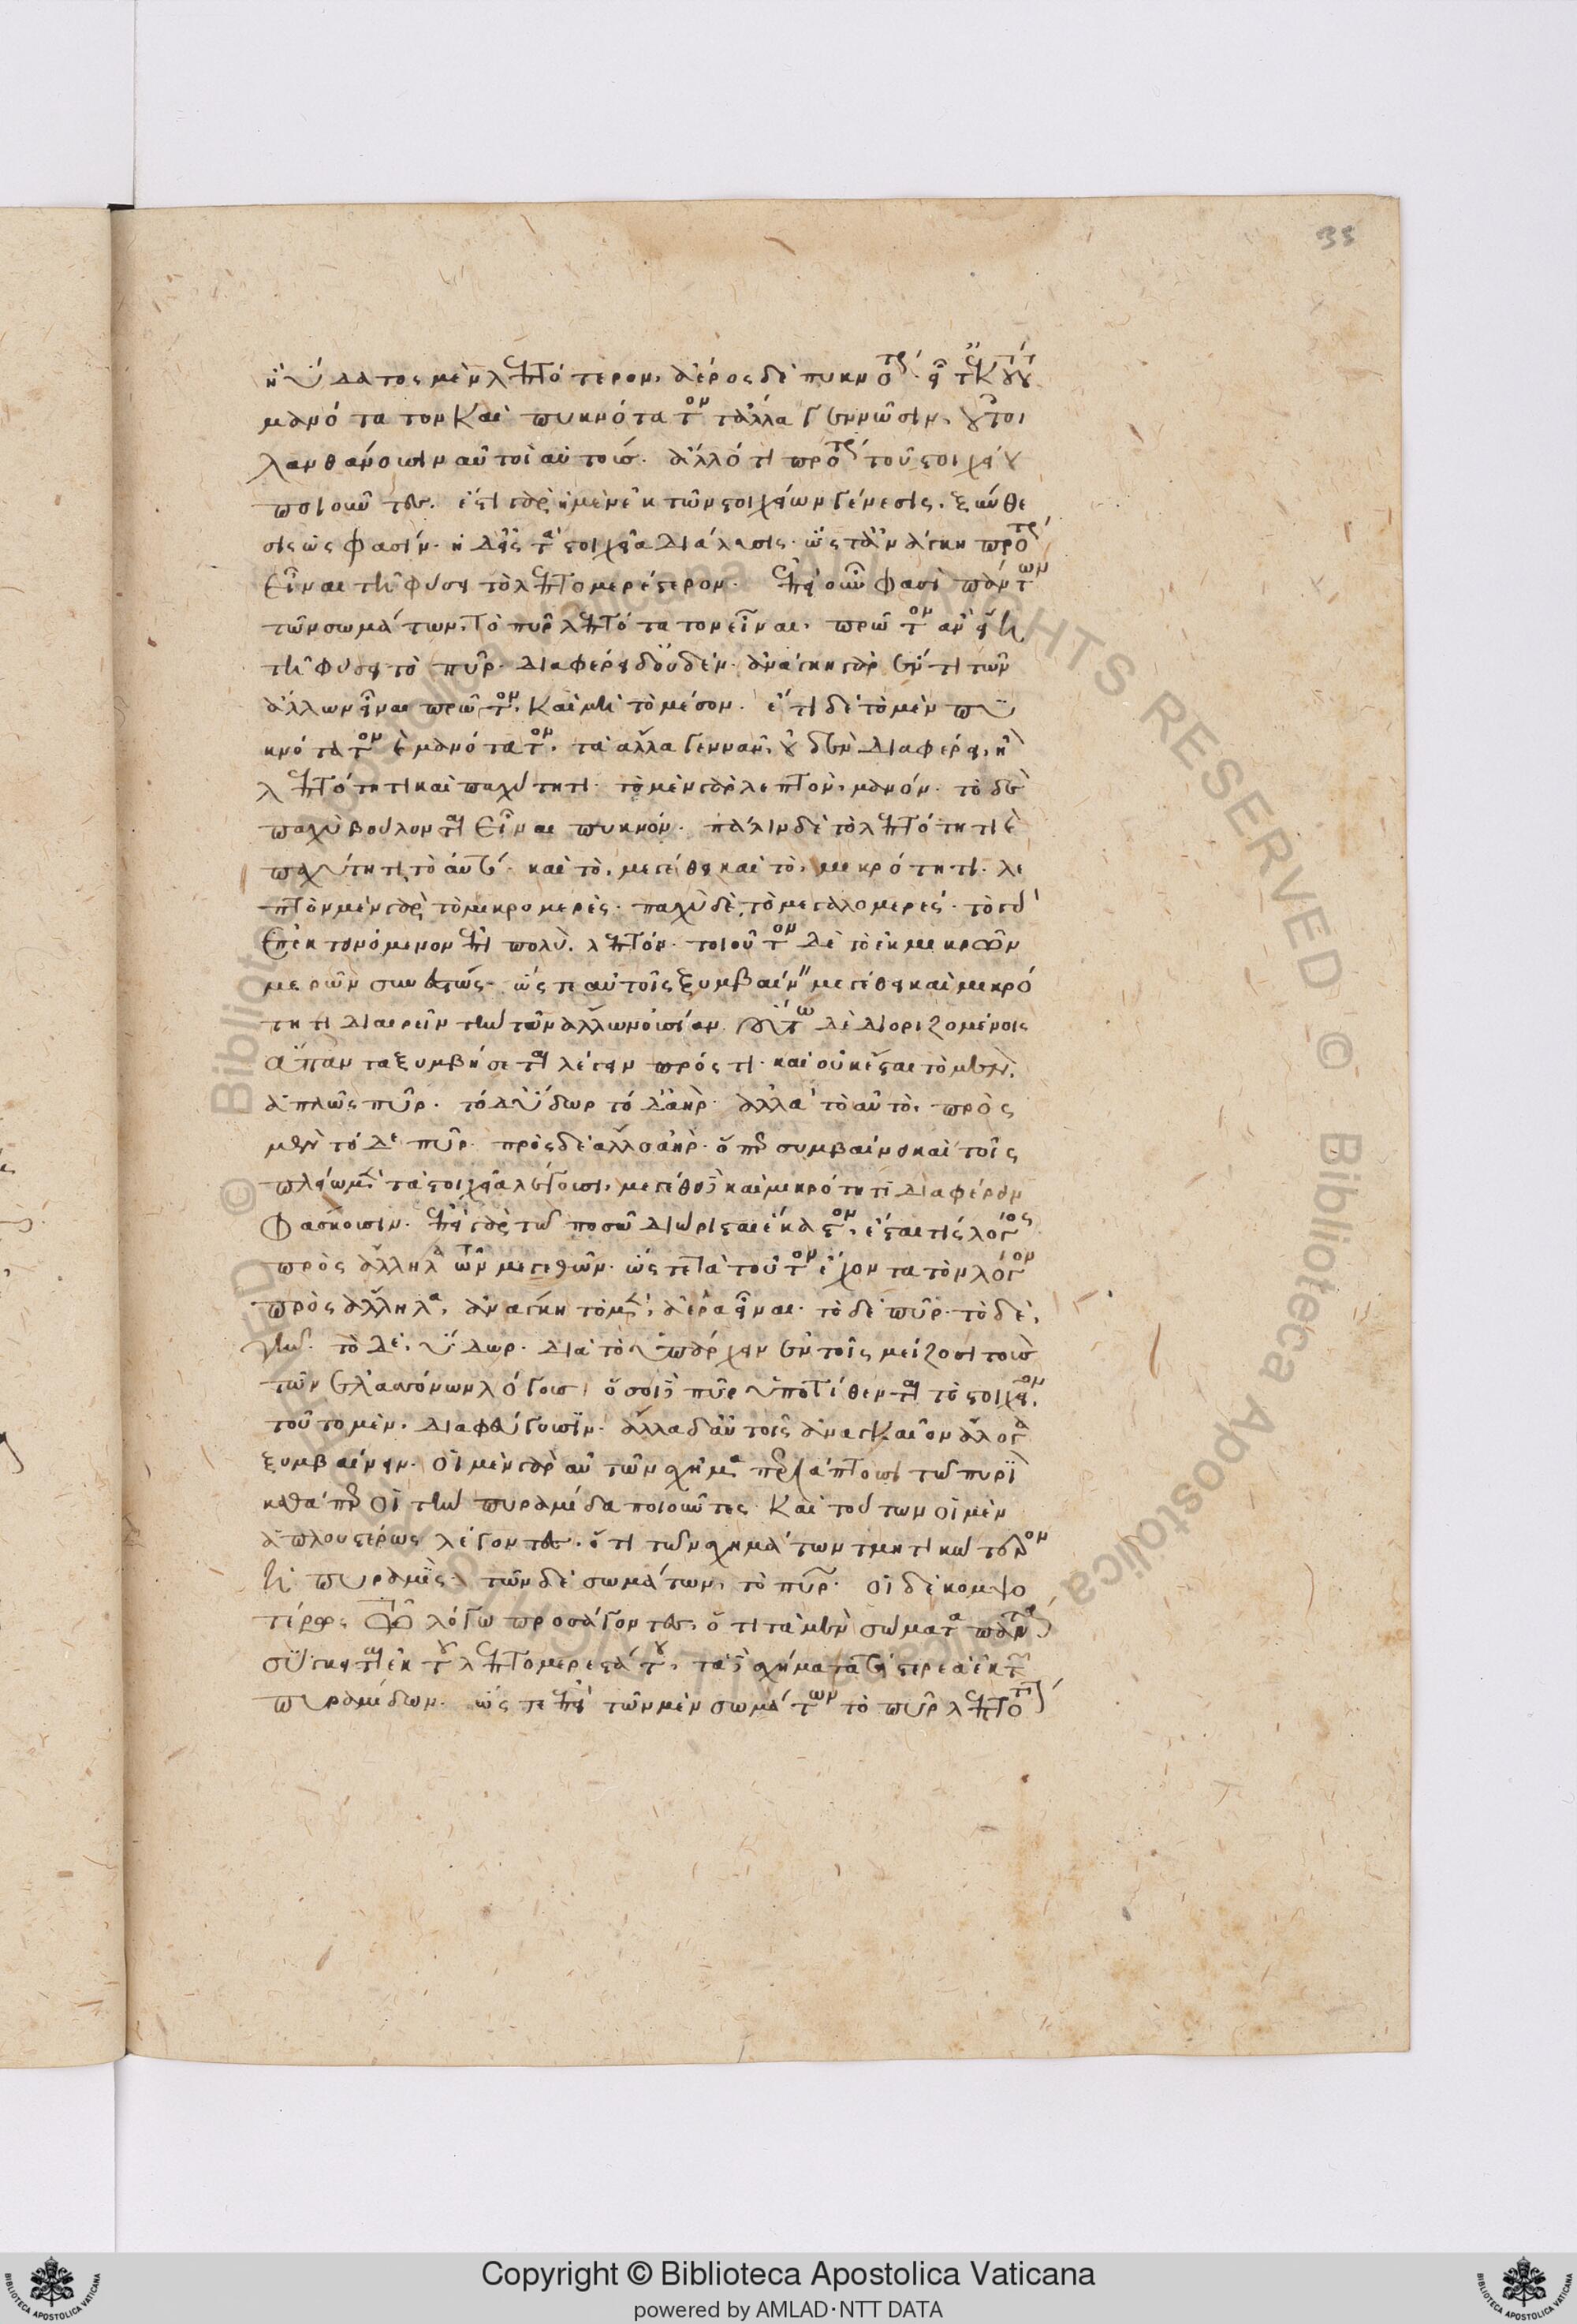 ἢ ὕδατος μὲν λεπτότερον, ἀέρος δὲ πυκνότερον· εἶτ' ἐκ τούτου
μανότατον καὶ πυκνότατον τἄλλα γεννῶσιν, οὗτοι
λανθάνουσιν αὐτοὶ αὑτοὺς ἄλλό τι πρότερον τοῦ στοιχείου
ποιοῦντες. ἔστι γὰρ ἡ μὲν ἐκ τῶν στοιχείων γένεσις, ξύνθε
σις ὥς φασίν· ἡ δ' εἰς τὰ στοιχεῖα διάλυσις· ὥστ' ἀνάγκη πρότερον
εἶναι τῇ φύσει τὸ λεπτομερέστερον. ἐπεὶ οὖν φασὶ πάντων
τῶν σωμάτων, τὸ πῦρ λεπτότατον εἶναι, πρῶτον ἂν εἴη
τῇ φύσει τὸ πῦρ· διαφέρει δ' οὐδέν· ἀνάγκη γὰρ ἕν τι τῶν
ἄλλων εἶναι πρῶτον, καὶ μὴ τὸ μέσον. ἔτι δὲ τὸ μὲν πυ
κνότατον καὶ μανότατον, τὰ ἄλλα γεννᾶν, οὐδὲν διαφέρει, ἢ
λεπτότητι καὶ παχύτητι· τὸ μὲν γὰρ λεπτὸν, μανόν· τὸ δὲ
παχὺ βούλονται εἶναι πυκνόν· πάλιν δὲ τὸ λεπτότητι καὶ
παχύτητι τὸ αὐτό· καὶ τὸ, μεγέθει καὶ τὸ, μικρότητι. λε
πτὸν μὲν γὰρ τὸ μικρομερές· παχὺ δὲ, τὸ μεγαλομερές· τὸ γὰρ
ἐπεκτεινόμενον ἐπὶ πολὺ, λεπτόν· τοιοῦτον δὲ τὸ ἐκ μικρῶν
μερῶν συνεστώς· ὥστε αὐτοῖς ξυμβαίνει μεγέθει καὶ μικρό
τητι διαιρεῖν τὴν τῶν ἄλλων οὐσίαν. οὕτω δὲ διοριζομένοις
ἅπαντα ξυμβήσεται λέγειν πρός τι· καὶ οὐκ ἔσται τὸ μὲν,
ἁπλῶς πῦρ· τὸ δ' ὕδωρ τὸ δ' ἀήρ· ἀλλὰ τὸ αὐτὸ, πρὸς
μὲν τόδε πῦρ· πρὸς δὲ ἄλλο ἀήρ· ὅπερ συμβαίνει καὶ τοῖς
πλείω μὲν τὰ στοιχεῖα λέγουσι, μεγέθει δὲ καὶ μικρότητι διαφέρειν
φάσκουσιν. ἐπεὶ γὰρ τῷ ποσῷ διώρισται ἕκαστον, ἔσται τις λόγος
πρὸς ἄλληλα τῶν μεγεθῶν· ὥστε τὰ τοῦτον ἔχοντα τὸν λόγον
πρὸς ἄλληλα, ἀνάγκη τὸ μὲν, ἀέρα εἶναι· τὸ δὲ πῦρ· τὸ δὲ,
γῆν· τὸ δὲ, ὕδωρ· διὰ τὸ ὑπάρχειν ἐν τοῖς μείζοσι τοὺς
τῶν ἐλαττόνων λόγους. ὅσοι δὲ πῦρ ὑποτίθενται τὸ στοιχεῖον,
τοῦτο μὲν, διαφεύγουσιν· ἄλλα δ' αὐτοῖς ἀναγκαῖον ἄλογα
ξυμβαίνειν. οἱ μὲν γὰρ αὐτῶν σχῆμα περιάπτουσι τῷ πυρὶ
καθάπερ οἱ τὴν πυραμίδα ποιοῦντες· καὶ τούτων οἱ μὲν
ἁπλουστέρως λέγοντες, ὅτι τῶν σχημάτων τμητικώτατον
ἡ πυραμίς· τῶν δὲ σωμάτων, τὸ πῦρ. οἱ δὲ κομψο
τέρως τῷ λόγῳ προσάγοντες, ὅτι τὰ μὲν σώματα πάντα
σύγκειται ἐκ τοῦ λεπτομερεστάτου, τὰ δὲ σχήματα τὰ στερεὰ ἐκ
πυραμίδων. ὥστε ἐπεὶ τῶν μὲν σωμάτων τὸ πῦρ λεπτότατον